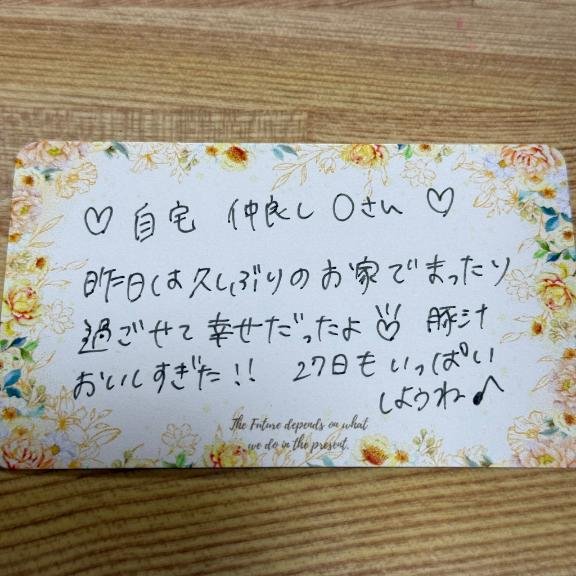 ♡ 自宅 仲良し ○さん ♡
昨日は久しぶりのお家でまったり
過ごせて幸せだったよ♡ 豚汁
おいしすぎた!! 27日もいっぱい
しようね♪
The Future depends on what
we do in the present.